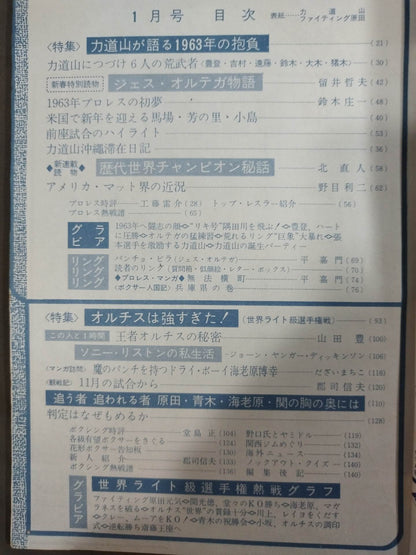 1月号 目次 表紙……力道山 ファイティング原田
〈特集〉 力道山が語る1963年の抱負 (21)
力道山につづけ6人の荒武者(豊登・吉村・遠藤・鈴木・大木・猪木) (30)
新春特別読物 ジェス・オルテガ物語 留井哲夫 (42)
1963年プロレスの初夢 鈴木庄一 (48)
米国で新年を迎える馬場・芳の里・小島 (40)
前座試合のハイライト (53)
力道山沖縄滞在日記 (36)
◆新連載読物◆ 歴代世界チャンピオン秘話 北直人 (58)
アメリカ・マット界の近況 野目利二 (62)
プロレス時評 工藤雷介 (28) トップ・レスラー紹介 (56)
プロレス熱戦譜 (65)
グラビア
1963年へ闘志の顔◇"リキ号"隅田川を飛ぶ!◇豊登、ハート
に圧勝◇オルテガの猛練習◇荒れるリング"巨象"大暴れ◇張
本選手を激励する力道山◇力道山の誕生パーティー
リング リング リング
パンチョ・ビラ(ジェス・オルテガ) 平嘉門 (69)
読者のリング(質問箱・似顔絵・レター・ボックス) (70)
◆プロレス・マンガ◆無法横町 平嘉門 (74)
(ボクサー人国記)兵庫県の巻 (76)
〈特集〉 オルチスは強すぎた! (世界ライト級選手権戦) (93)
この人と1時間 王者オルチスの秘密 山田豊 (100)
ソニー・リストンの私生活 ジョーン・ヤンガー・ディッキンソン (106)
〈マンガ訪問〉魔のパンチを持つドライ・ボーイ海老原博幸 だざいまちこ (118)
〈観戦記〉11月の試合から 郡司信夫 (113)
追う者 追われる者 原田・青木・海老原・関の胸の奥には (110)
判定はなぜもめるか (128)
ボクシング時評 堂島正 (104)
各級有望ボクサーをさぐる (124)
花形ボクサー告知板 (130)
新人紹介 郡司信夫 (133)
ボクシング熱戦譜 (136)
野口氏とヤミドル (119)
関西ジムめぐり (132)
海外ニュース (134)
ノックアウト・クイズ (140)
編集後記 (140)
グラビア
世界ライト級選手権熱戦グラフ
ファイティング原田元気◇関光徳、堂々のKO勝ち◇海老原、マガ
ラネスを破る◇オルチス"世界"の貫録十分◇川上、レイヨをくだす
◇クレー、ムーアをKO!◇青木の祝勝会◇小坂、オルチスの調印
式◇逆転勝ち斎藤王座へ